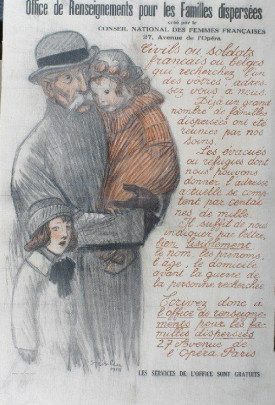 Office de Renseignements pour les Familles dispersées
créé par le
CONSEIL NATIONAL DES FEMMES FRANÇAISES
27, Avenue de l'Opéra
Civils ou soldats
français ou belges
qui recherchez l'un
des vôtres adres-
sez vous à nous.
Déjà un grand
nombre de familles
dispersées ont été
réunies par nos
soins.
Les évacués
ou réfugiés dont
nous pouvons
donner l'adresse
actuelle se comp-
tent par centai-
nes de mille.
Il suffit de nous
indiquer par lettre
bien lisiblement
le nom, les prénoms,
l'âge, le domicile
avant la guerre de
la personne recherchée
Ecrivez donc à
l'office de renseigne-
ments pour les fa-
milles dispersées
27 Avenue de
l'Opéra Paris
LES SERVICES DE L'OFFICE SONT GRATUITS